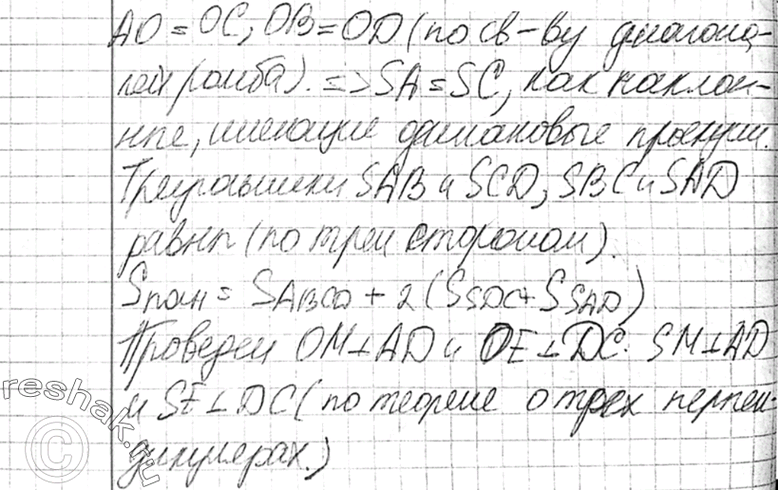 AO = OC, OB = OD (по св-ву диагона-
лей ромба). => SA = SC, как наклон-
ные, имеющие одинаковые проекции.
Треугольники SAB и SCD, SBC и SAD
равны (по трем сторонам).
Sпол = SABCD + 2 (SSDC + SSAD)
Проведем OM⊥AD и OE⊥DC. SM⊥AD
и SE⊥DC (по теореме о трех перпен-
дикулярах.)
reshak.ru
©